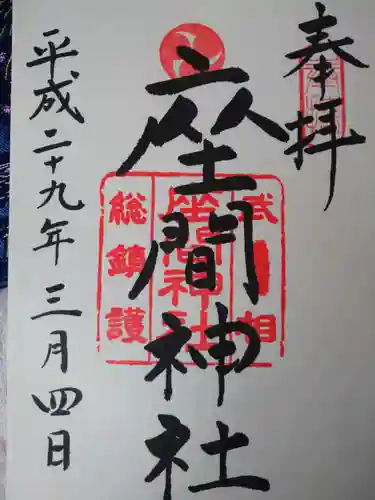 奉拝
座間神社
平成二十九年三月四日
座間神社
総鎮護